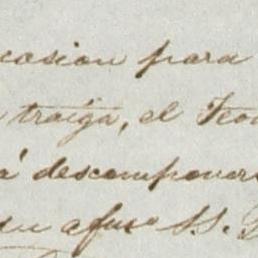 casion para
traiga, el Teo
á descomponer
su afmo S. S.